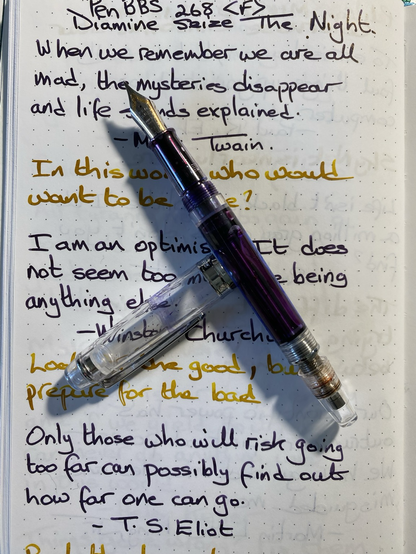 PenBBS 268 <F>
Diamine Seize The Night.
When we remember we are all
mad, the mysteries disappear
and life explained.
- Twain.
In this who would
want to be ?
I am an It does
not seem too being
anything
- Winston
good,
prepare for the bad
Only those who will risk going
too far can possibly find out
how far one can go.
- T. S. Eliot